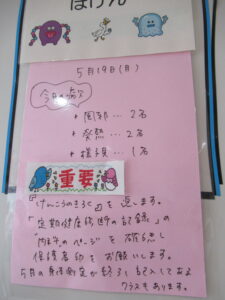 ほけん
5月19日(月)
今日の病欠
* 風邪… 2名
* 発熱… 2名
* 様子見… 1名
重要
「けんこうのきろく」を返します。
「定期健康診断の記録」の
ページを確認し
保護者印をお願いします。
5月の身体測定が終了し記入してある
クラスもあります。